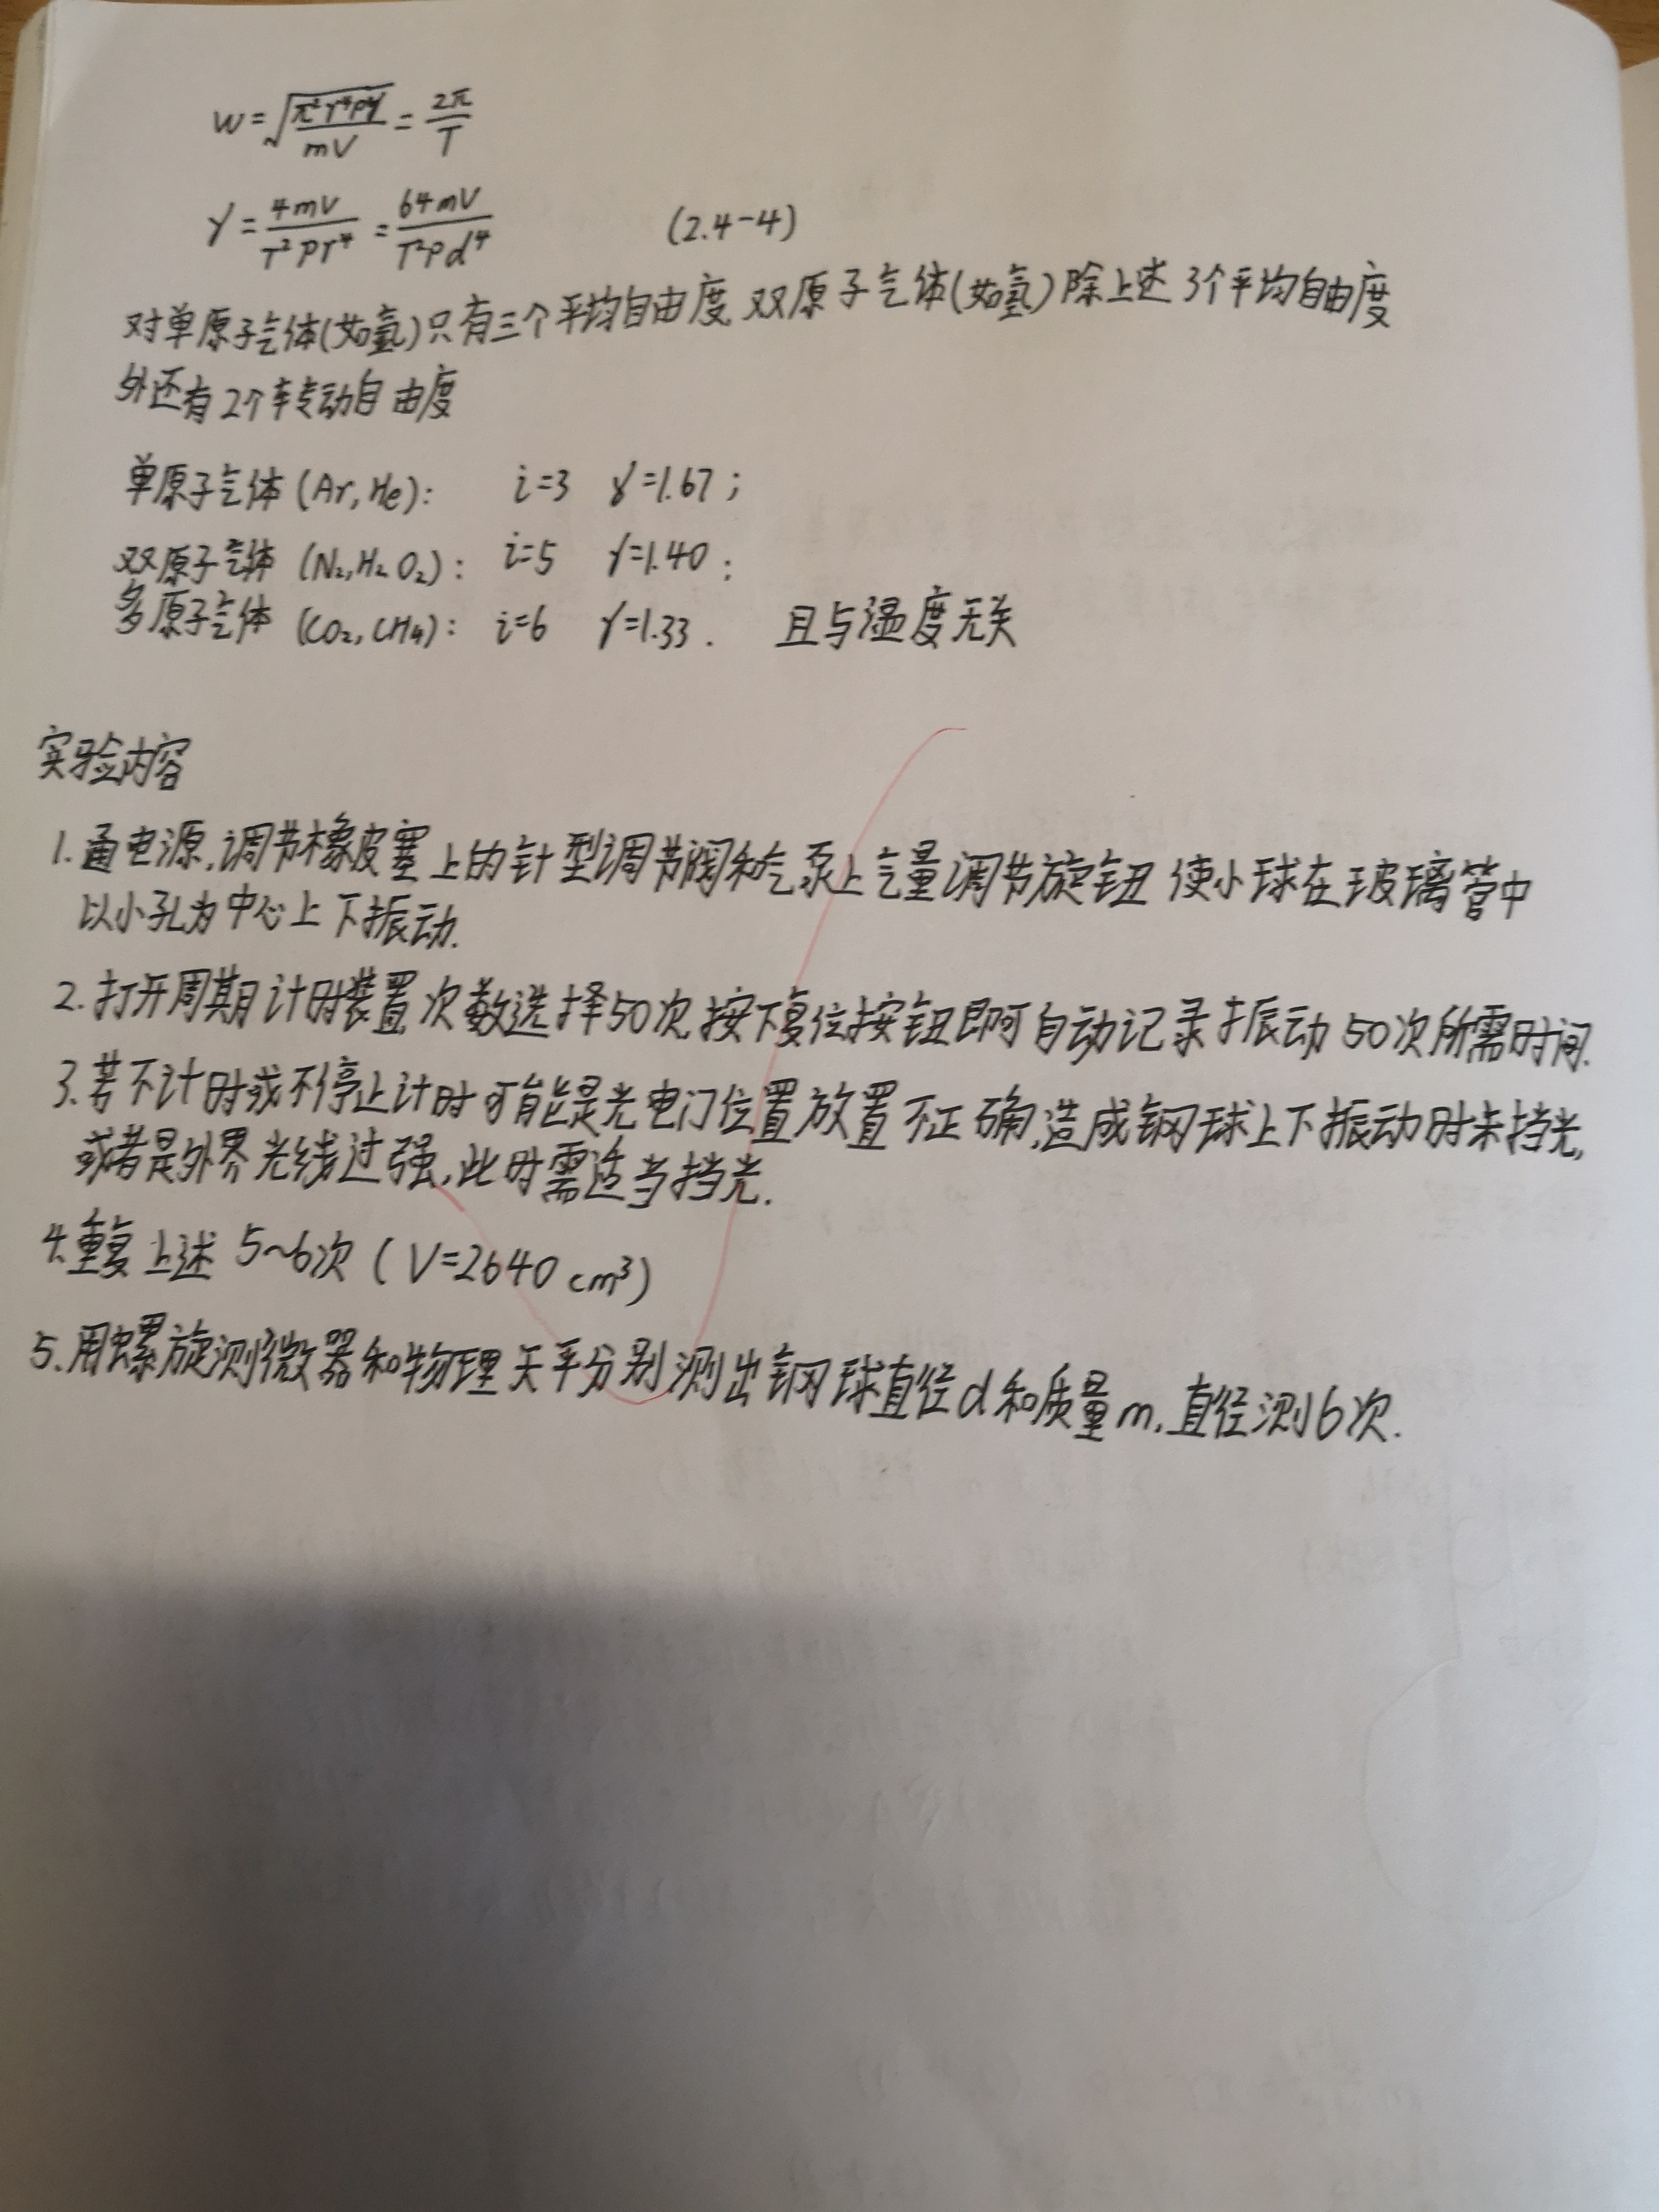 w=√(π²r⁴pγ/mV)=2π/T
γ=4mV/T²pr⁴=64mV/T²pd⁴ (2.4-4)
对单原子气体(如氩)只有三个平均自由度,双原子气体(如氢)除上述3个平均自由度
外还有2个转动自由度
单原子气体(Ar,He): i=3 γ=1.67;
双原子气体(N₂,H₂ O₂): i=5 γ=1.40;
多原子气体(CO₂,CH₄): i=6 γ=1.33. 且与温度无关
实验内容
1.通电源,调节橡皮塞上的针型调节阀和气泵上气量调节旋钮 使小球在玻璃管中
以小孔为中心上下振动.
2.打开周期计时装置,次数选择50次,按下复位按钮即可自动记录振动50次所需时间.
3.若不计时或不停止计时可能是光电门位置放置不正确,造成钢球上下振动时未挡光,
或者是外界光线过强,此时需适当挡光.
4.重复上述 5~6次(V=2640 cm³)
5.用螺旋测微器和物理天平分别测出钢球直径d和质量m,直径测6次.